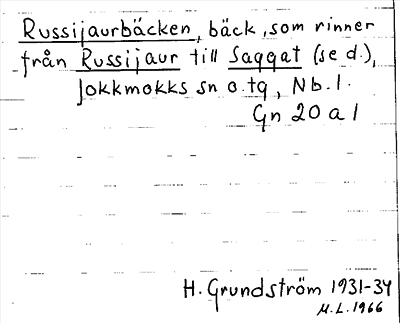 Russijaurbäcken, bäck, som rinner
från Russijaur till Saggat (se d.),
Jokkmokks sn o. tg, Nb. l.
Gn 20 a 1
H. Grundström 1931-34
M.L. 1966